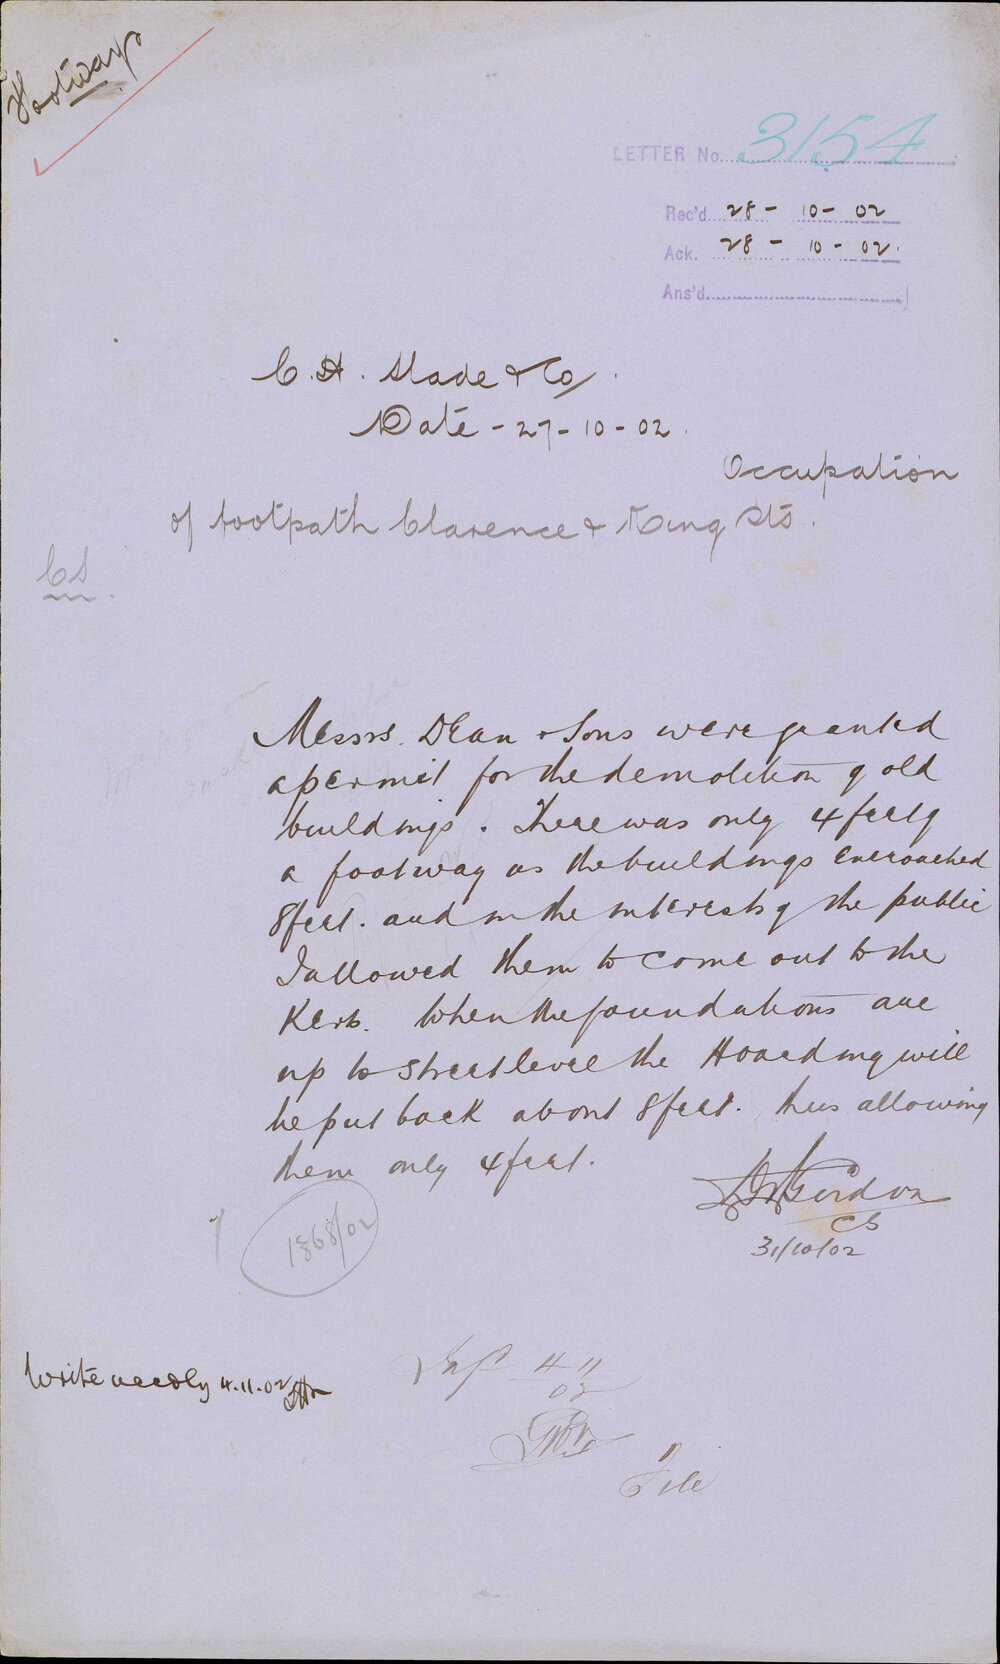 Footways
LETTER No. 3154
Rec'd. 28 - 10 - 02
Ack. 28 - 10 - 02.
Ans'd.
C. H. Slade & Co.
Date - 27 - 10 - 02.
Occupation
of footpath Clarence & King Sts.
CS
Messrs. Dean & Sons were granted
a permit for the demolition of old
buildings. There was only 4 feet of
a footway as the buildings encroached
8 feet. and in the interests of the public
I allowed them to come out to the
Kerb. When the foundations are
up to street level the Hoarding will
be put back about 8 feet. thus allowing
them only 4 feet.
Gordon
CS
31/10/02
1868/02
Write accdly 4.11.02
4/11/02
File